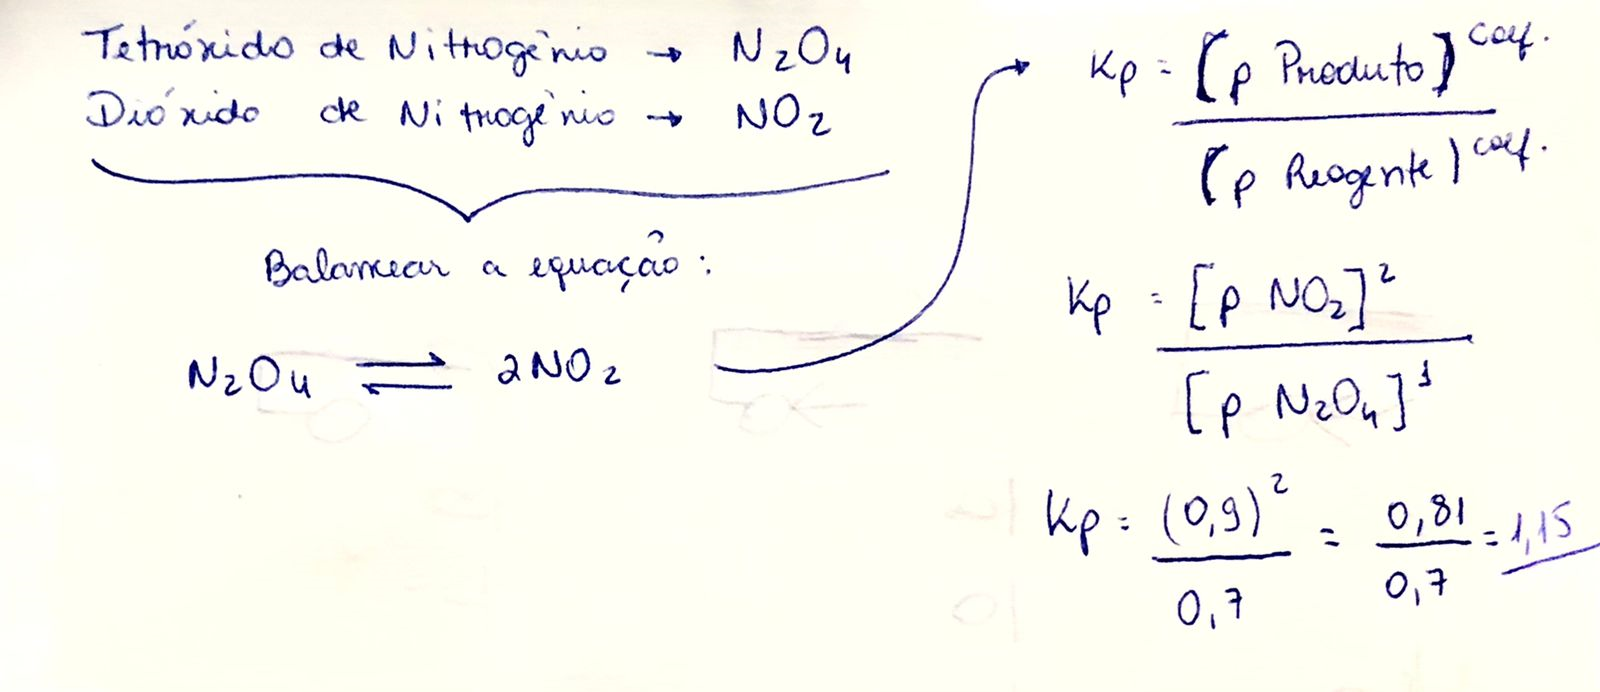 Tetróxido de Nitrogênio → N₂O₄
Dióxido de Nitrogênio → NO₂
Balancear a equação:
N₂O₄ ⇌ 2NO₂
Kp = (p Produto)^coef. / (p Reagente)^coef.
Kp = [p NO₂]² / [p N₂O₄]¹
Kp = (0,9)² / 0,7 = 0,81 / 0,7 = 1,15